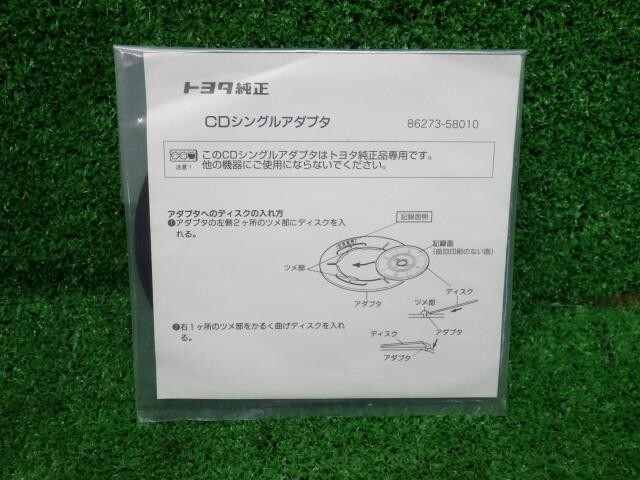 トヨタ純正
CDシングルアダプタ 86273-58010
このCDシングルアダプタはトヨタ純正品専用です。
注意！ 他の機器にご使用にならないでください。
アダプタへのディスクの入れ方
❶アダプタの左側2ヶ所のツメ部にディスクを入
れる。
記録面側
記録面
(曲目印刷のない面)
ツメ部
アダプタ
ディスク
ツメ部
アダプタ
❷右1ヶ所のツメ部をかるく曲げディスクを入れ
る。
ディスク
アダプタ